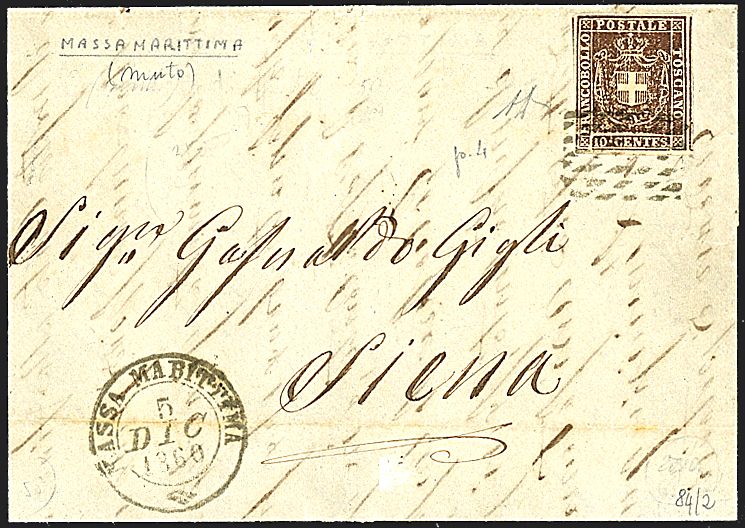 MASSA MARITTIMA
(muto)
FRANCOBOLLO
POSTALE
TOSCANO
10 CENTES
p. 4
Sigr
Gigli
Siena
MASSA MARITTIMA
5
DIC
1860
84/2